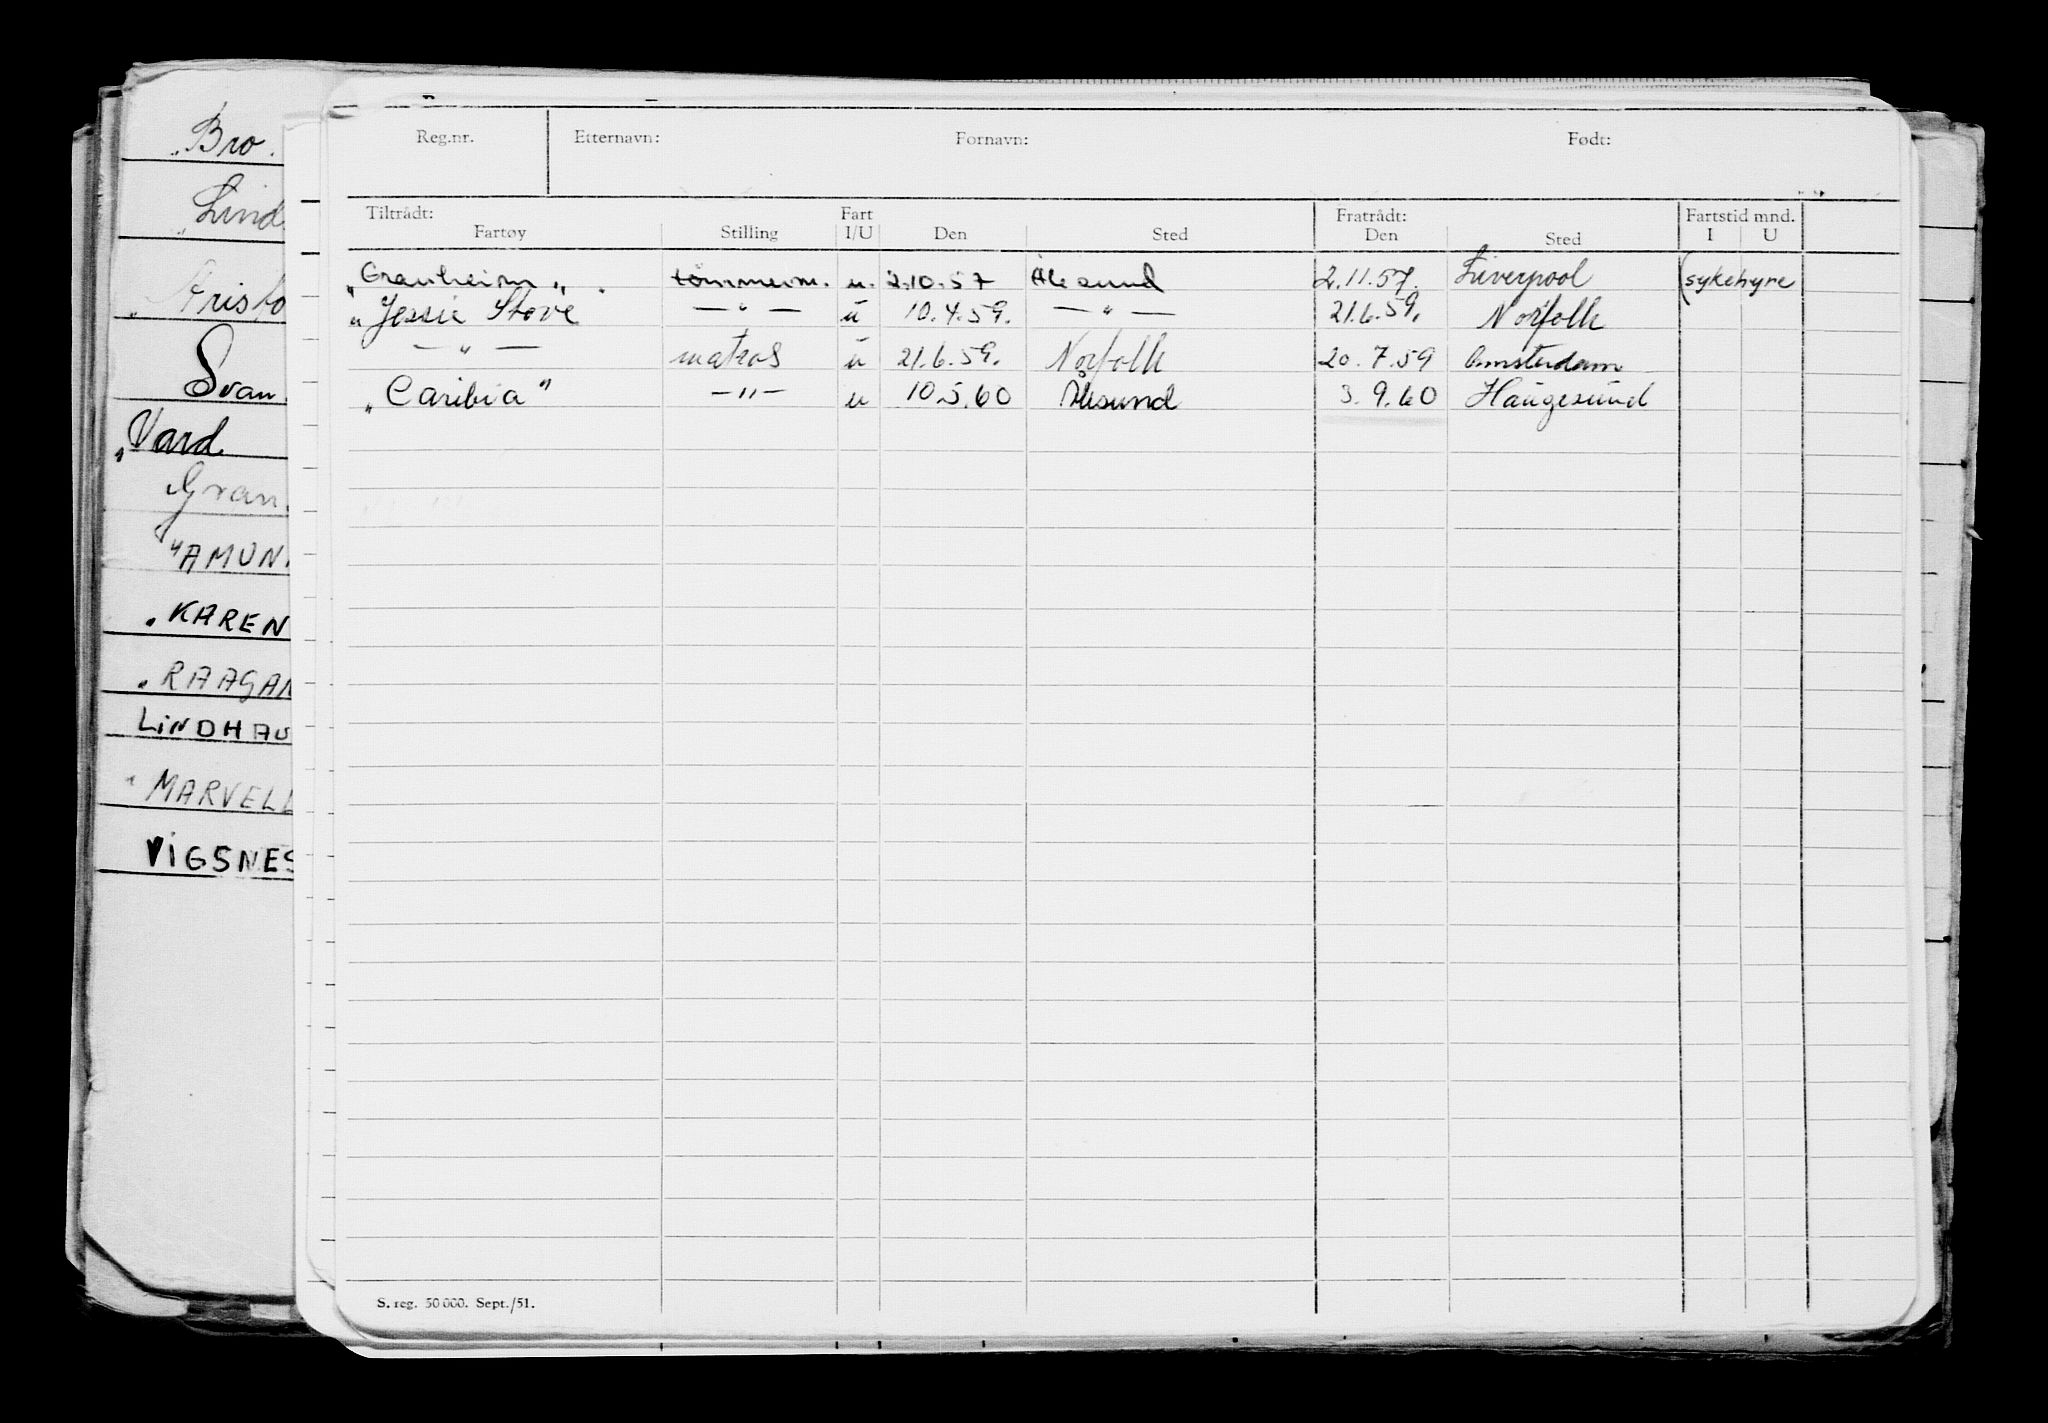 „Bro.
„Lind
„Aristo
Svan
„Vard
Gran
"AMUN
„KAREN
„RAAGAN
LINDHAU
"MARVELL
VIGSNES
Reg.nr. Etternavn: Fornavn: Født:
Tiltrådt: Fart Fratrådt: Fartstid mnd.
Fartøy Stilling I/U Den Sted Den Sted I U
„Granheim„ tömmerm. u. 2.10.57 Ålesund 2.11.57. Liverpool (sykehyre
„Jessie Stove — " — u 10.4.59. — " — 21.6.59. Norfolk
— " — matros u 21.6.59. Norfolk 20.7.59 Amsterdam
„Caribia" —"— u 10.5.60 Ålesund 3.9.60 Haugesund
S. reg. 50 000. Sept./51.